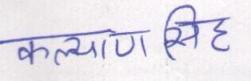 कल्याण सिंह